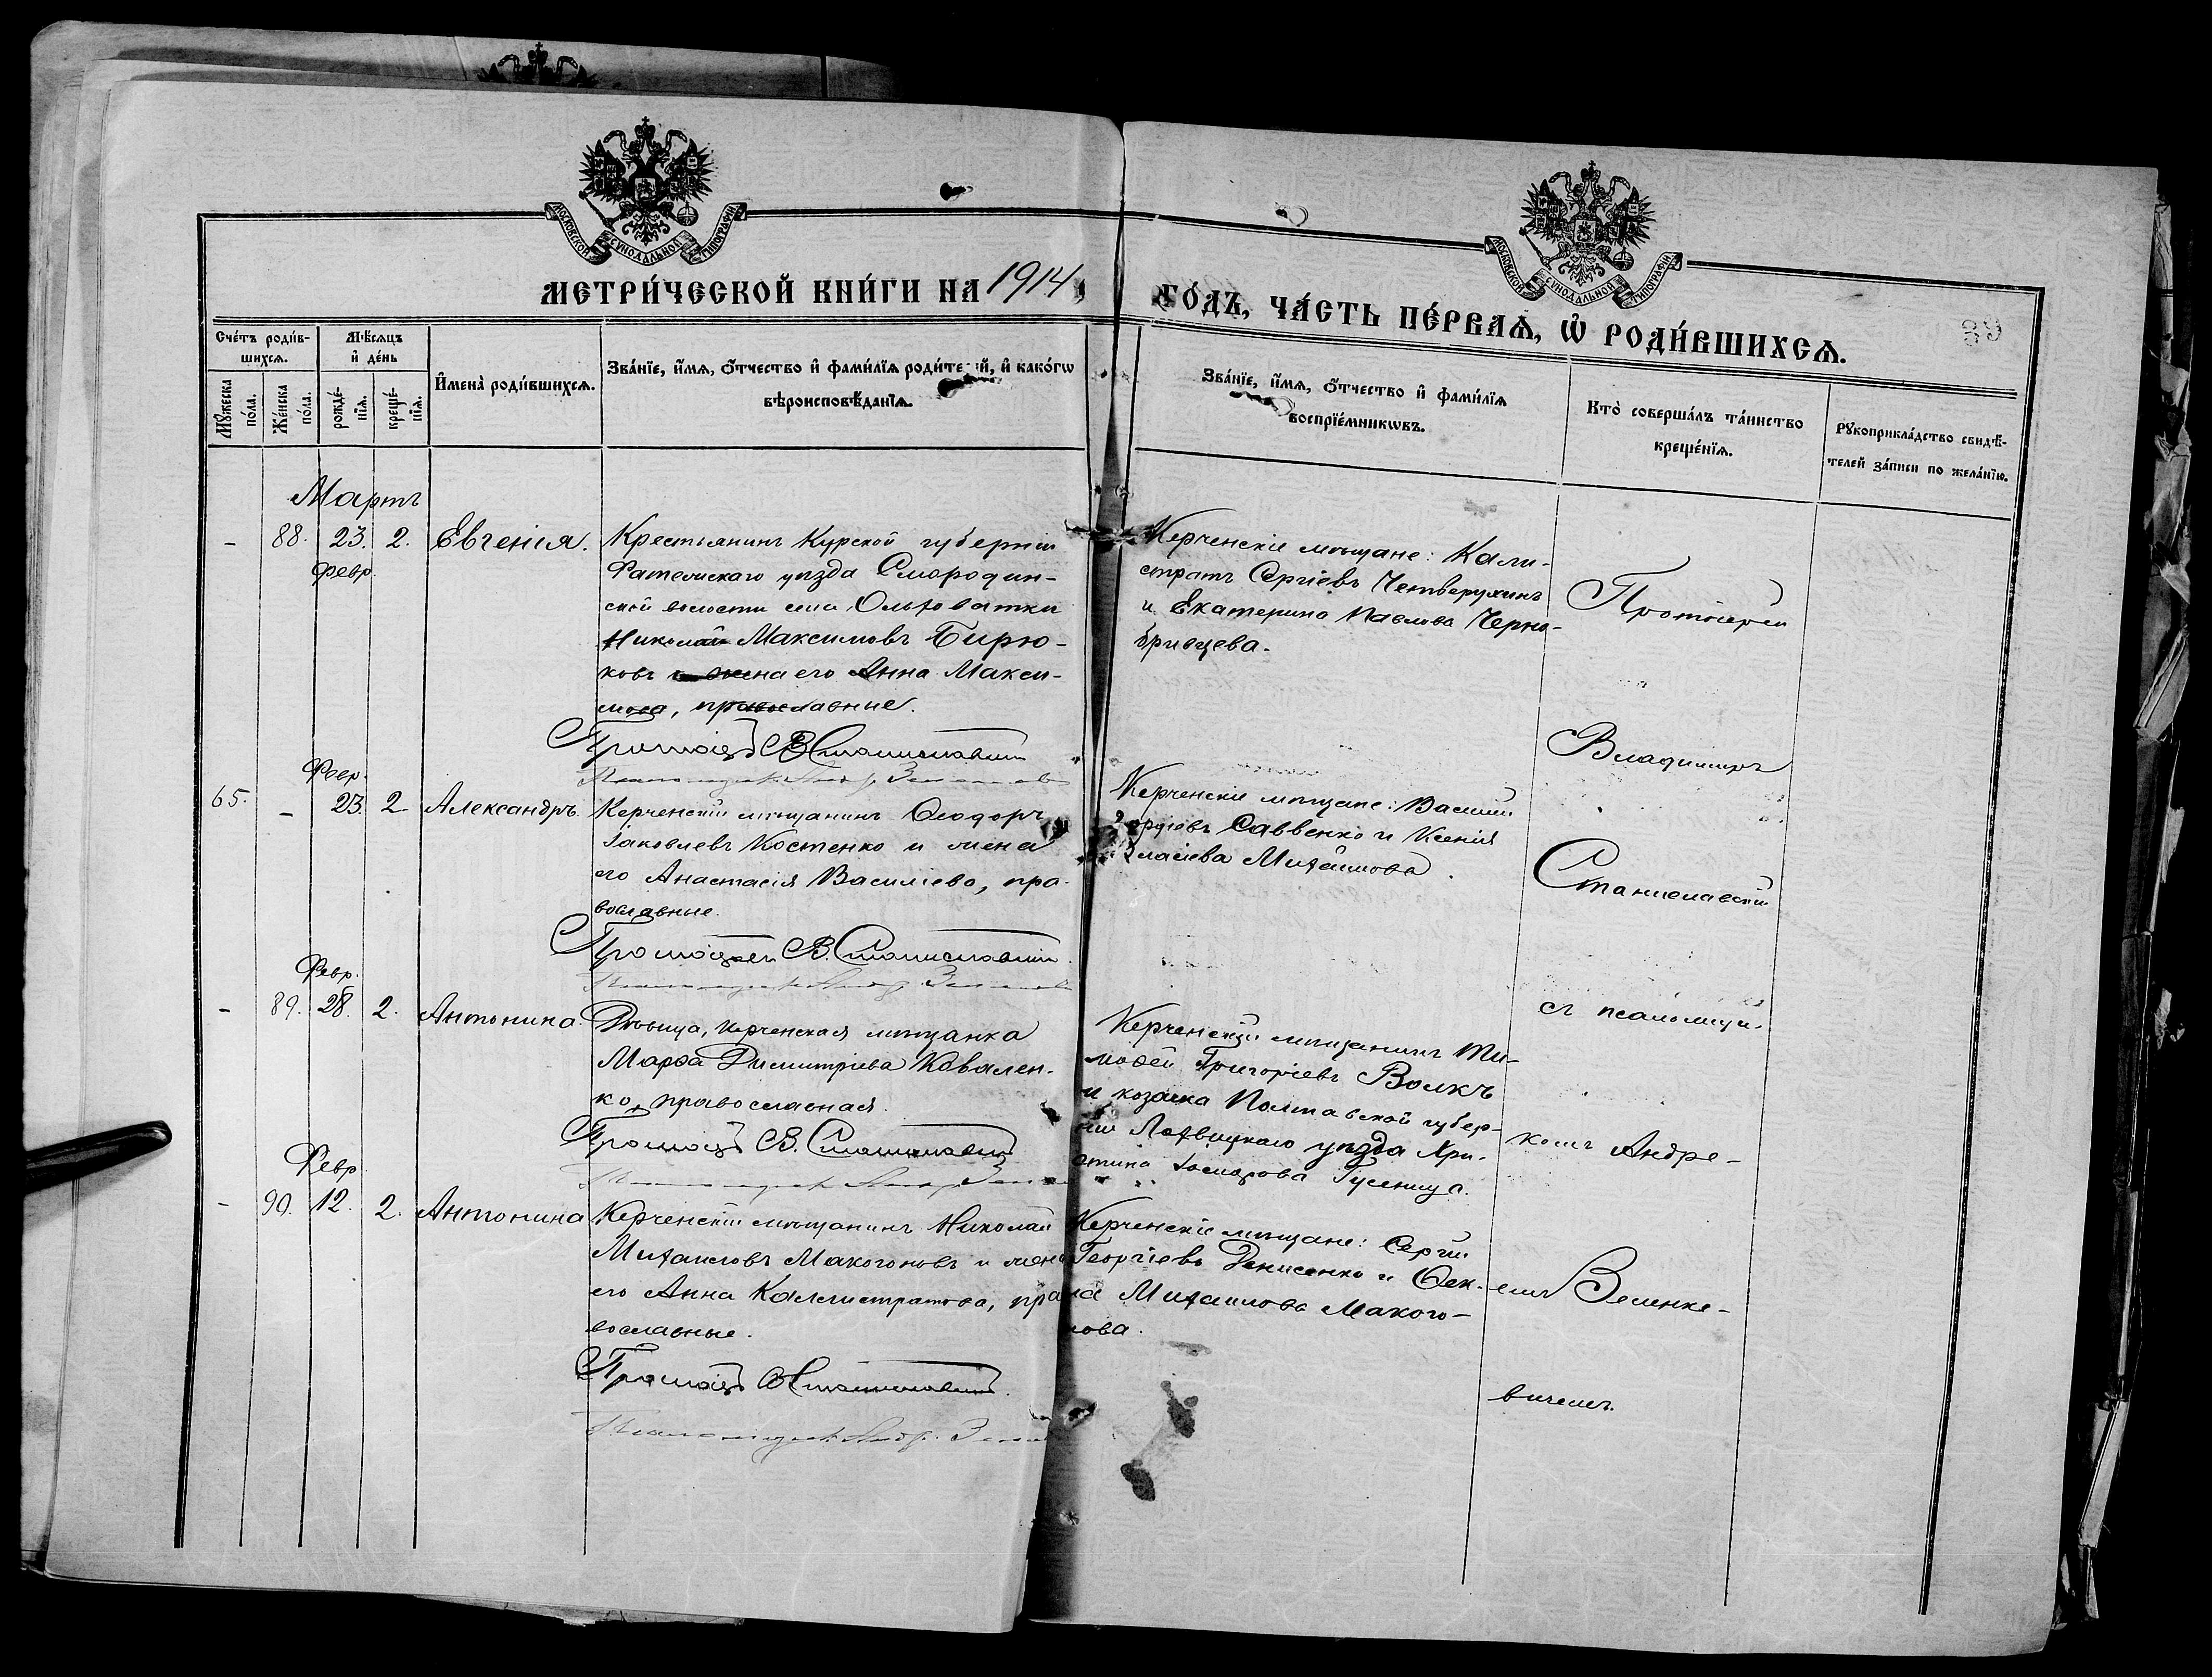 МОСКОВСКОЙ СУНОДАЛЬНОЙ ТИПОГРАФІИ
МОСКОВСКОЙ СУНОДАЛЬНОЙ ТИПОГРАФІИ
МЕТРИ́ЧЕСКОЙ КНИ́ГИ НА 1914
ГО́ДЪ, ЧА́СТЬ ПЕ́РВАѦ, Ѡ҆ РОДИ́ВШИХСѦ.
89
Сче́тъ роди́в-
шихсѧ.
Мѣ́сѧцъ
и҆ де́нь
Мꙋ́жеска
по́ла.
Же́нска
по́ла.
рожде́-
нїѧ.
креще́-
нїѧ.
И҆мена̀ роди́вшихсѧ.
Зва́нїе, и҆́мѧ, ѻ҆́тчество и҆ фами́лїѧ роди́телей, и҆ како́гѡ
вѣроисповѣ́данїѧ.
Зва́нїе, и҆́мѧ, ѻ҆́тчество и҆ фами́лїѧ
воспрїе́мникѡвъ.
Кто̀ соверша́лъ та́инство
креще́нїѧ.
Рꙋкоприкла́дство свидѣ́-
телей за́писи по жела́нїю.
Мартъ
- 88. 23. 2. Евгенія.
Февр.
Крестьянинъ Курской губерніи
Фатежскаго уѣзда Смородин-
ской волости села Ольховатки
Николай Максимовъ Бирю-
ковъ и жена его Анна Макси-
мова, православные.
Протоіер. В. Станиславскій
Керченскіе мѣщане: Кали-
стратъ Сергіевъ Четверухинъ
и Екатерина Павлова Черно-
бривцева.
Протоіерей
Владимиръ
Станиславскій
съ псаломщи-
комъ Андре-
емъ Зеленке-
вичемъ.
Февр.
65. - 23. 2 Александръ.
Керченскій мѣщанинъ Ѳеодоръ
Іаковлевъ Костенко и жена
его Анастасія Василіева, пра-
вославные.
Протоіерей В. Станиславскій
Керченскіе мѣщане: Василій
Саввенко и Ксенія
Власіева Михайлова.
Февр.
- 89. 28. 2. Антонина.
Дѣвица, керченская мѣщанка
Марѳа Димитріева Ковален-
ко, православная.
Протоіер. В. Станиславскій
Керченскій мѣщанинъ Ти-
моѳей Григоріевъ Волкъ
и козачка Полтавской губер-
ніи Лохвицкаго уѣзда Хри-
стина Гусеница.
Февр.
- 90. 12. 2. Антонина
Керченскій мѣщанинъ Николай
Михаиловъ Макогоновъ и жена
его Анна Каллистратова, пра-
вославные.
Протоіер. В. Станиславскій.
Керченскіе мѣщане: Сергій
Георгіевъ Денисенко и Ѳек-
ла Михаилова Макого-
нова.